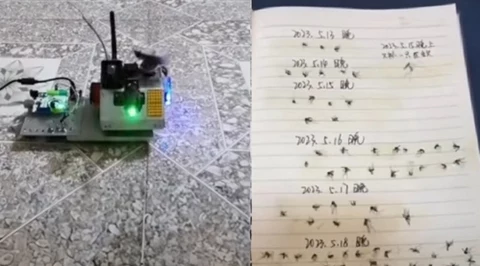 2023. 5.13 晚
2023. 5.14 晚
2023. 5.15 晚
2023. 5.15 晚上
2023. 5.16 晚
2023. 5.17 晚
2023. 5.18 晚